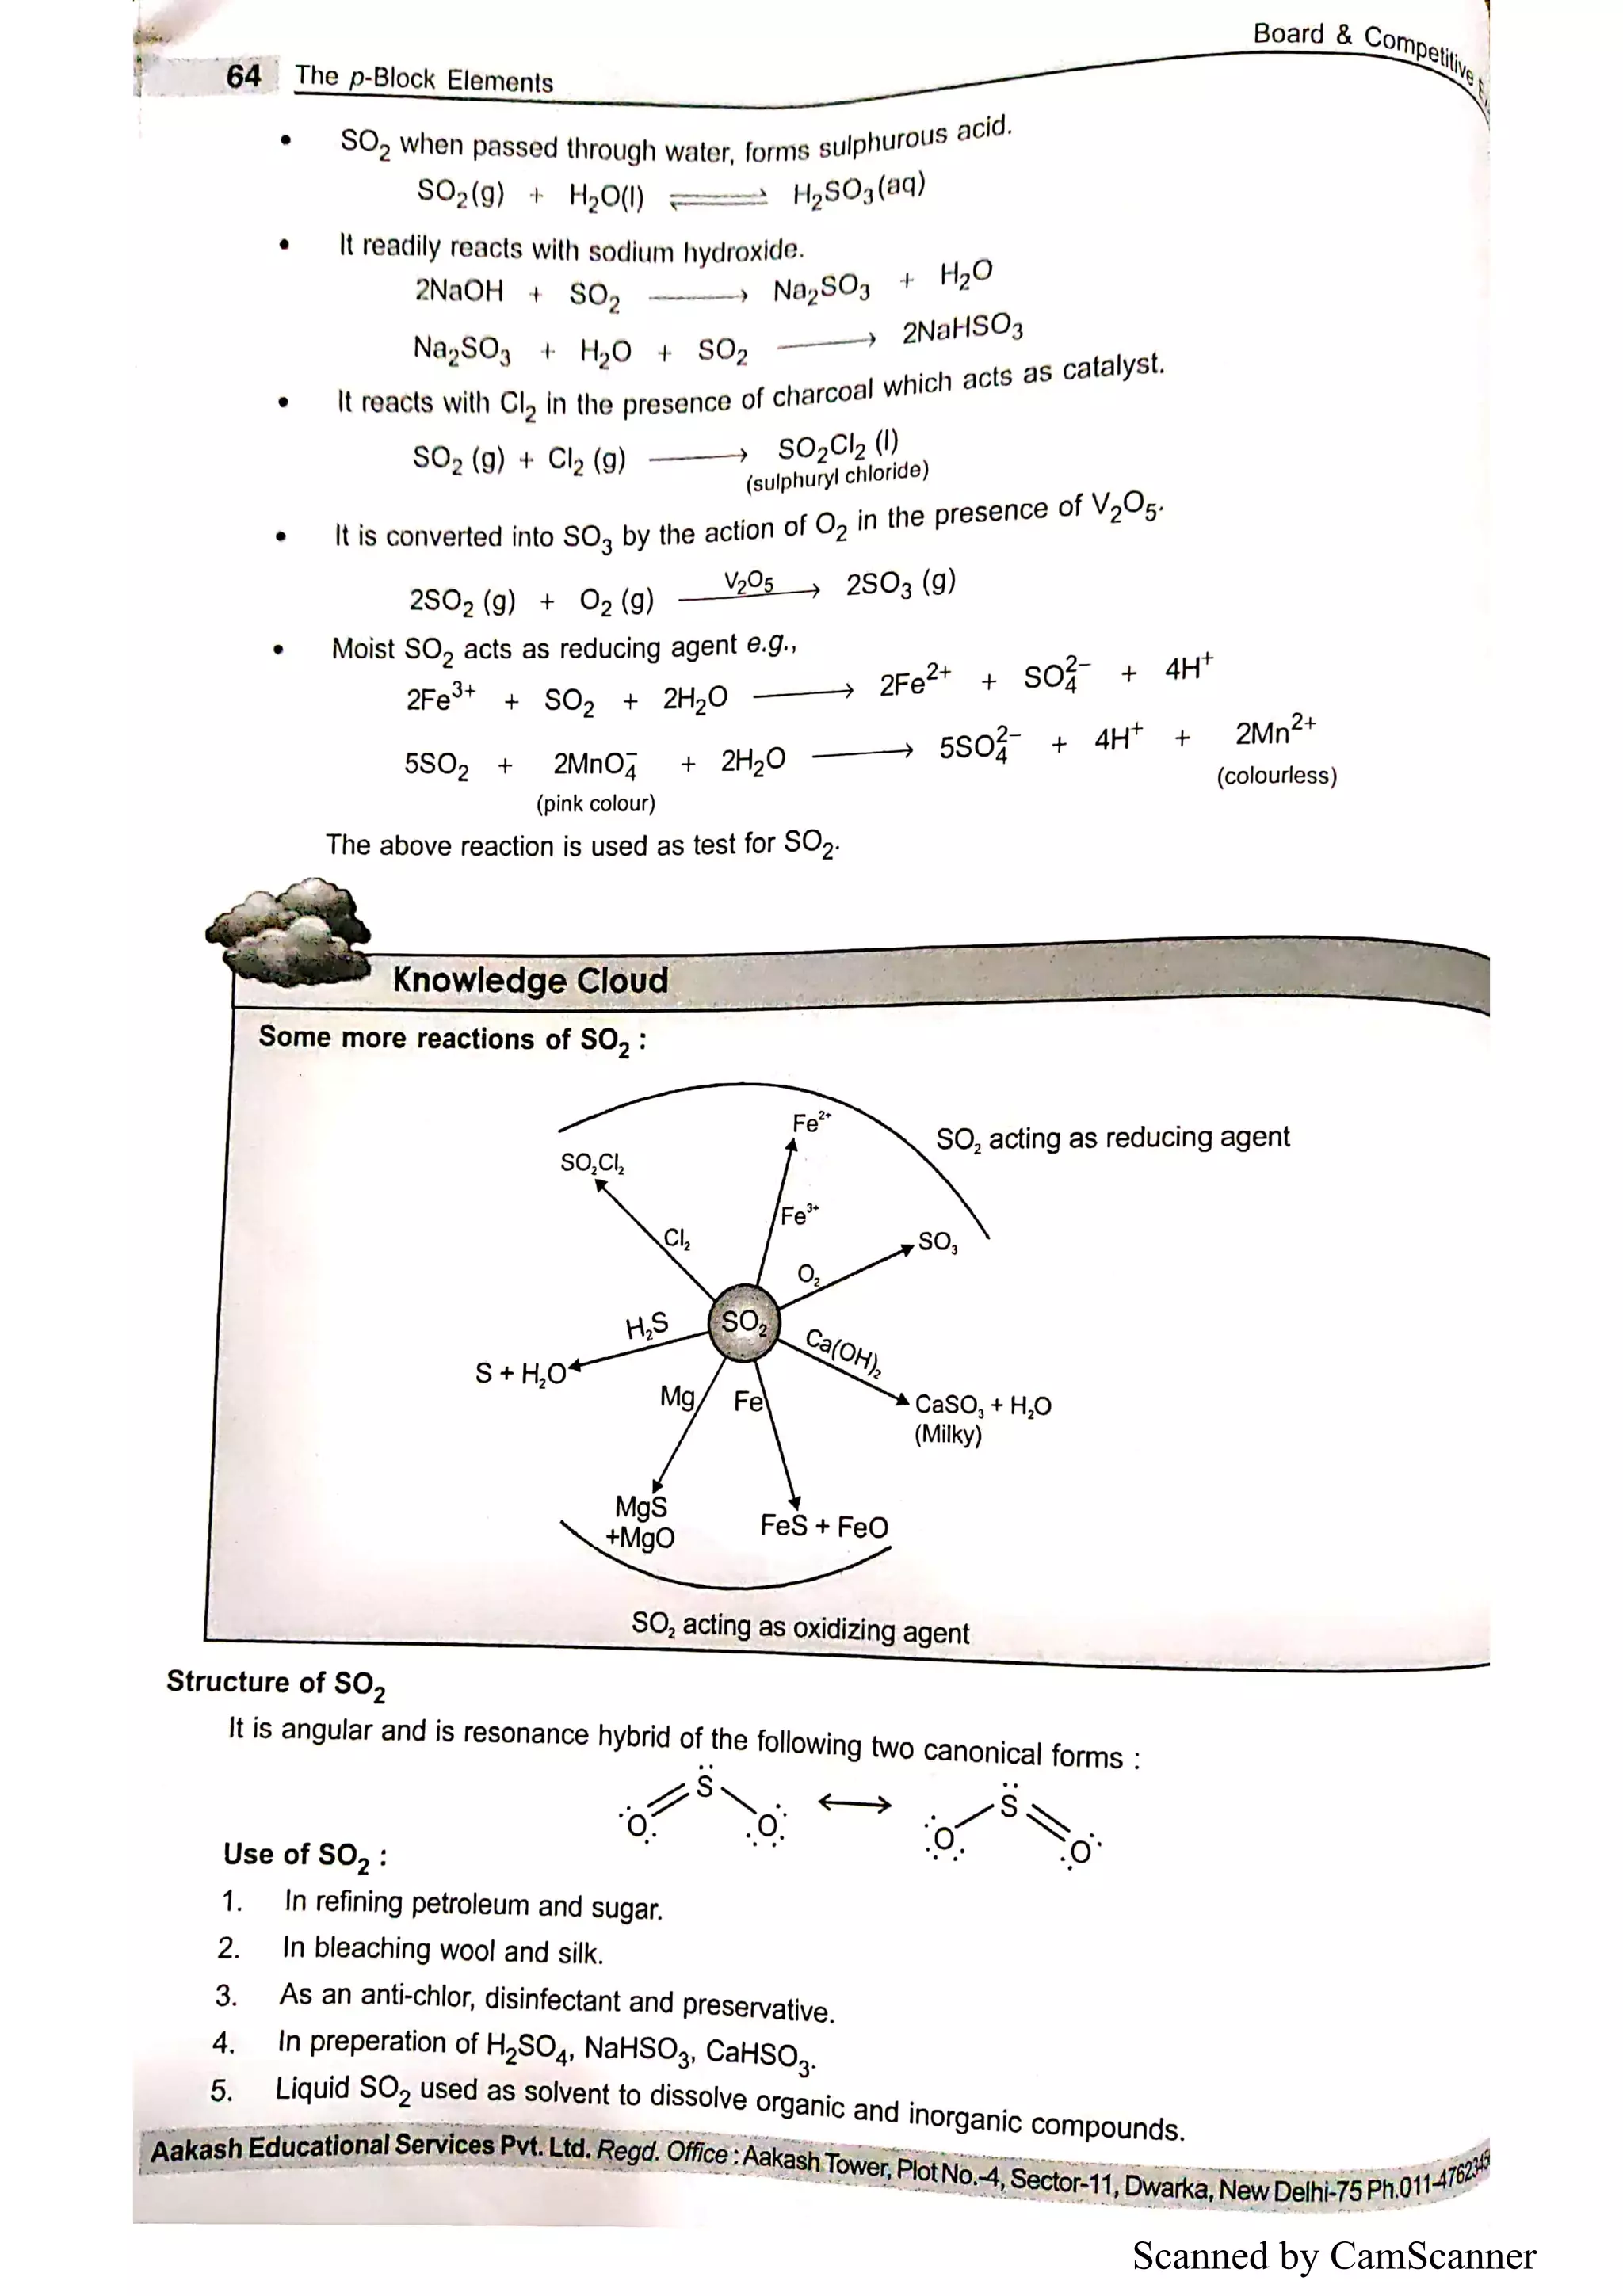 Board & Competitive
64 The p-Block Elements
• SO₂ when passed through water, forms sulphurous acid.
SO₂(g) + H₂O(l) ⇌ H₂SO₃(aq)
• It readily reacts with sodium hydroxide.
2NaOH + SO₂ ⟶ Na₂SO₃ + H₂O
Na₂SO₃ + H₂O + SO₂ ⟶ 2NaHSO₃
• It reacts with Cl₂ in the presence of charcoal which acts as catalyst.
SO₂ (g) + Cl₂ (g) ⟶ SO₂Cl₂ (l)
(sulphuryl chloride)
• It is converted into SO₃ by the action of O₂ in the presence of V₂O₅.
V₂O₅
2SO₂ (g) + O₂ (g) ⟶ 2SO₃ (g)
• Moist SO₂ acts as reducing agent e.g.,
2Fe³⁺ + SO₂ + 2H₂O ⟶ 2Fe²⁺ + SO₄²⁻ + 4H⁺
5SO₂ + 2MnO₄⁻ + 2H₂O ⟶ 5SO₄²⁻ + 4H⁺ + 2Mn²⁺
(pink colour) (colourless)
The above reaction is used as test for SO₂.
Knowledge Cloud
Some more reactions of SO₂ :
Fe²⁺
SO₂ acting as reducing agent
SO₂Cl₂
Fe³⁺
Cl₂
SO₃
O₂
H₂S
SO₂
Ca(OH)₂
S + H₂O
Mg
Fe
CaSO₃ + H₂O
(Milky)
MgS
+MgO
FeS + FeO
SO₂ acting as oxidizing agent
Structure of SO₂
It is angular and is resonance hybrid of the following two canonical forms :
S ⟷ S
O O O O
Use of SO₂ :
1. In refining petroleum and sugar.
2. In bleaching wool and silk.
3. As an anti-chlor, disinfectant and preservative.
4. In preperation of H₂SO₄, NaHSO₃, CaHSO₃.
5. Liquid SO₂ used as solvent to dissolve organic and inorganic compounds.
Aakash Educational Services Pvt. Ltd. Regd. Office : Aakash Tower, Plot No.-4, Sector-11, Dwarka, New Delhi-75 Ph.011-4762345
Scanned by CamScanner